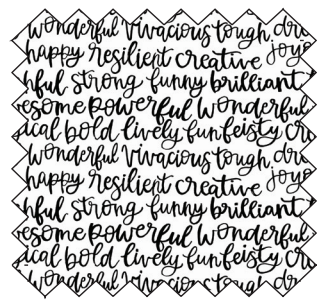 wonderful vivacious tough dre
happy resilient creative joyo
hful strong funny brilliant
esome powerful wonderful
ical bold lively fun feisty cre
wonderful vivacious tough dre
happy resilient creative joyo
hful strong funny brilliant
esome powerful wonderful
ical bold lively fun feisty cre
wonderful vivacious tough